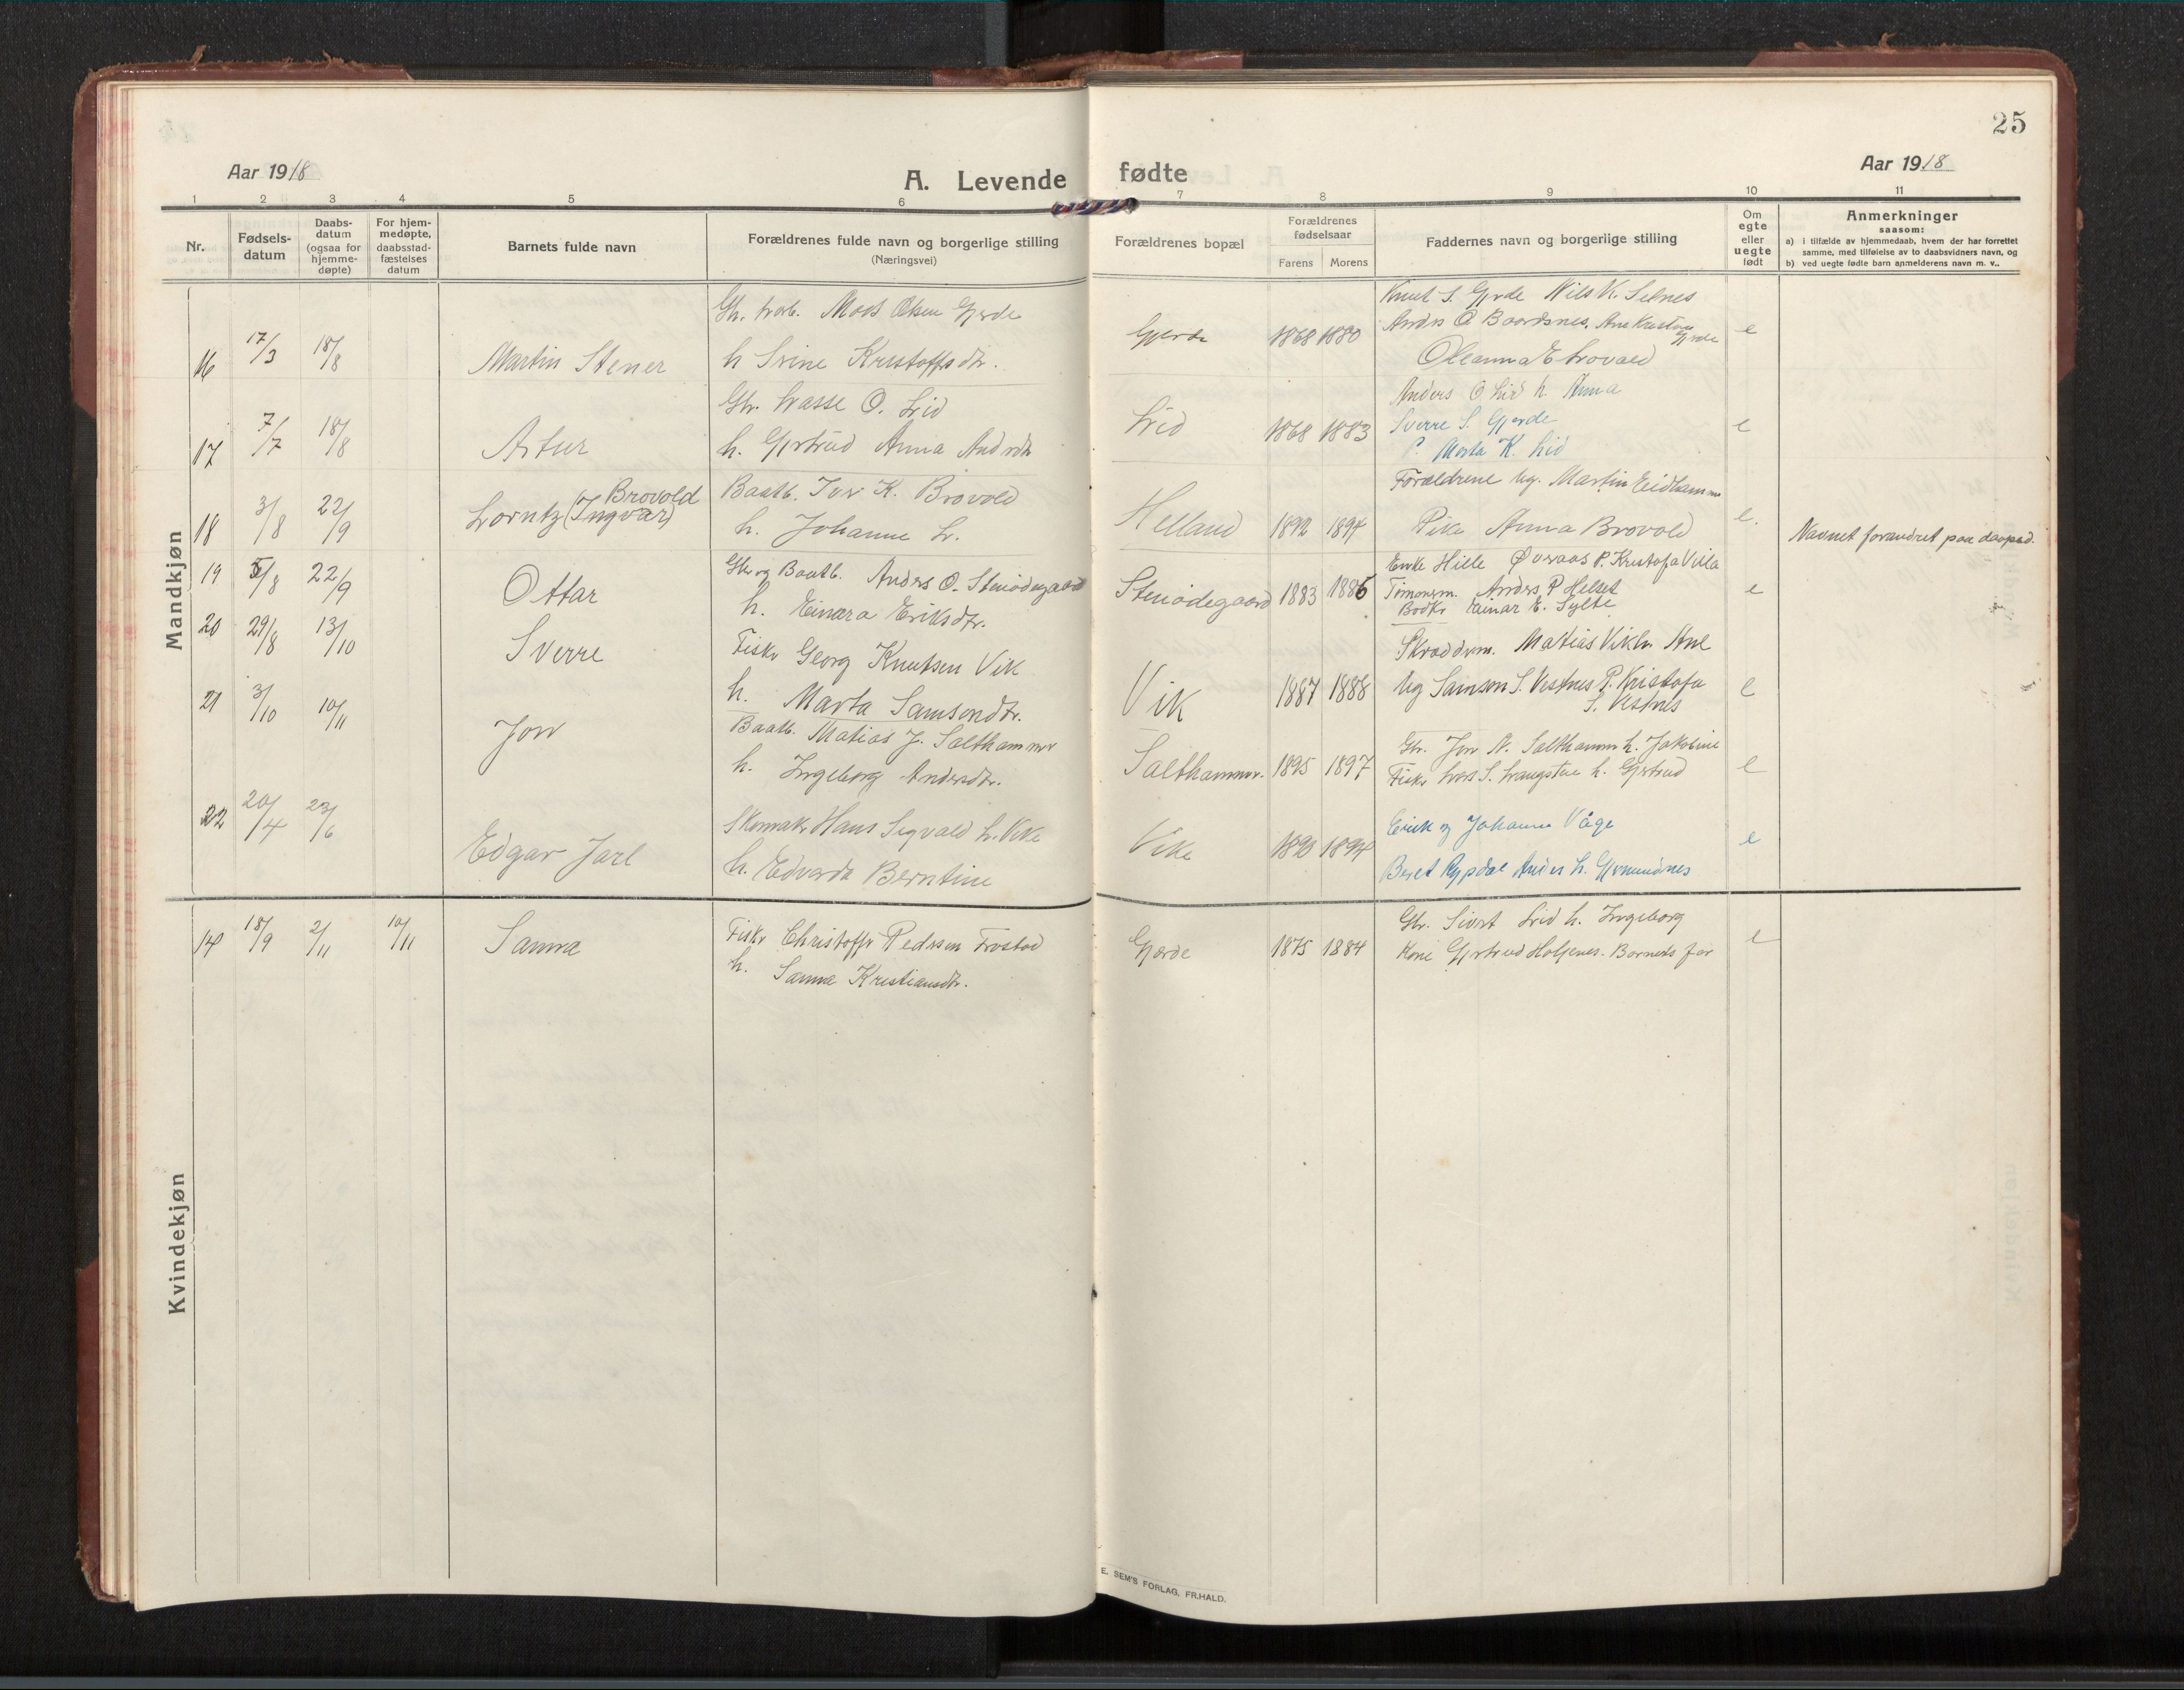 25
Aar 1918
A. Levende fødte
Aar 1918
1 2 3 4 5 6 7 8 9 10 11
Nr.
Fødsels-
datum
Daabs-
datum
(ogsaa for
hjemme-
døpte)
For hjem-
medøpte,
daabsstad-
fæstelses
datum
Barnets fulde navn
Forældrenes fulde navn og borgerlige stilling
(Næringsvei)
Forældrenes bopæl
Forældrenes
fødselsaar
Farens Morens
Faddernes navn og borgerlige stilling
Om
egte
eller
uegte
født
Anmerkninger
saasom:
a) i tilfælde av hjemmedaab, hvem der har forrettet
samme, med tilføielse av to daabsvidners navn, og
b) ved uegte fødte barn anmelderens navn m. v..
Mandkjøn
16 17/3 18/8 Martin Stener
Olsen Gjerde
h Kristoffsdtr.
Gjerde 1868 1880
Knut S. Gjerde Nils K. Selnes
Anders O Baardsnes,
Gjerde
e
17 7/7 18/8 Artur
Lasse O. Lid
h. Gjertrud Anna
Lid 1868 1883
Anders O Lid h. Anna
Sverre S. Gjerde
Marta K. Lid
e
18 3/8 22/9 Lorntz (Ingvar) Brovold
Baatb. Iver K. Brovold
h. Johanne L.
Helland 1892 1894
Forældrene Ug. Martin Eidhammer
Pike Anna Brovold
e.
Navnet forandret paa daapsd.
19 5/8 22/9 Ottar
Gbr og Baatb. Anders O. Stenødegaard
h. Einara Eriksdtr.
Stenødegaard 1883 1886
Enke Hille Øveraas P. Kristofa Villa
Tømmerm. Anders P Helset
Bødker Einar E. Sylte
e
20 29/8 13/10 Sverre
Fisker Georg Knutsen Vik
h. Marta Samsondtr.
Vik 1887 1888
Skreddrm. Matias Vik h. Ane
Ug Samson S. Vestnes P. Kristofa
S. Vestnes
e
21 3/10 10/11 Jon
Baatb. Matias J. Salthammer
h. Ingeborg Andersdtr.
Salthammer. 1895 1897
Gbr. Jon A. Salthammer h. Jakobine
Fisker Lars S. h. Gjertrud
e
22 20/4 23/6 Edgar Jarl
Skomaker Hans Sigvald L. Vike
h. Edvarda Berntine
Vike 1893 1894
Erik og Johanne Våge
Beret Rypdal Anders L. Gjermundnes
e
Kvindekjøn
14 18/9 2/11 10/11 Sanna
Fisker Christoffer Pedersen Frostad
h. Sanna Kristiansdtr.
Gjerde 1875 1884
Gbr. Sivert Lid h. Ingeborg
Kone Gjertrud Holjenes. Barnets far
e
E. SEM'S FORLAG, FR.HALD.